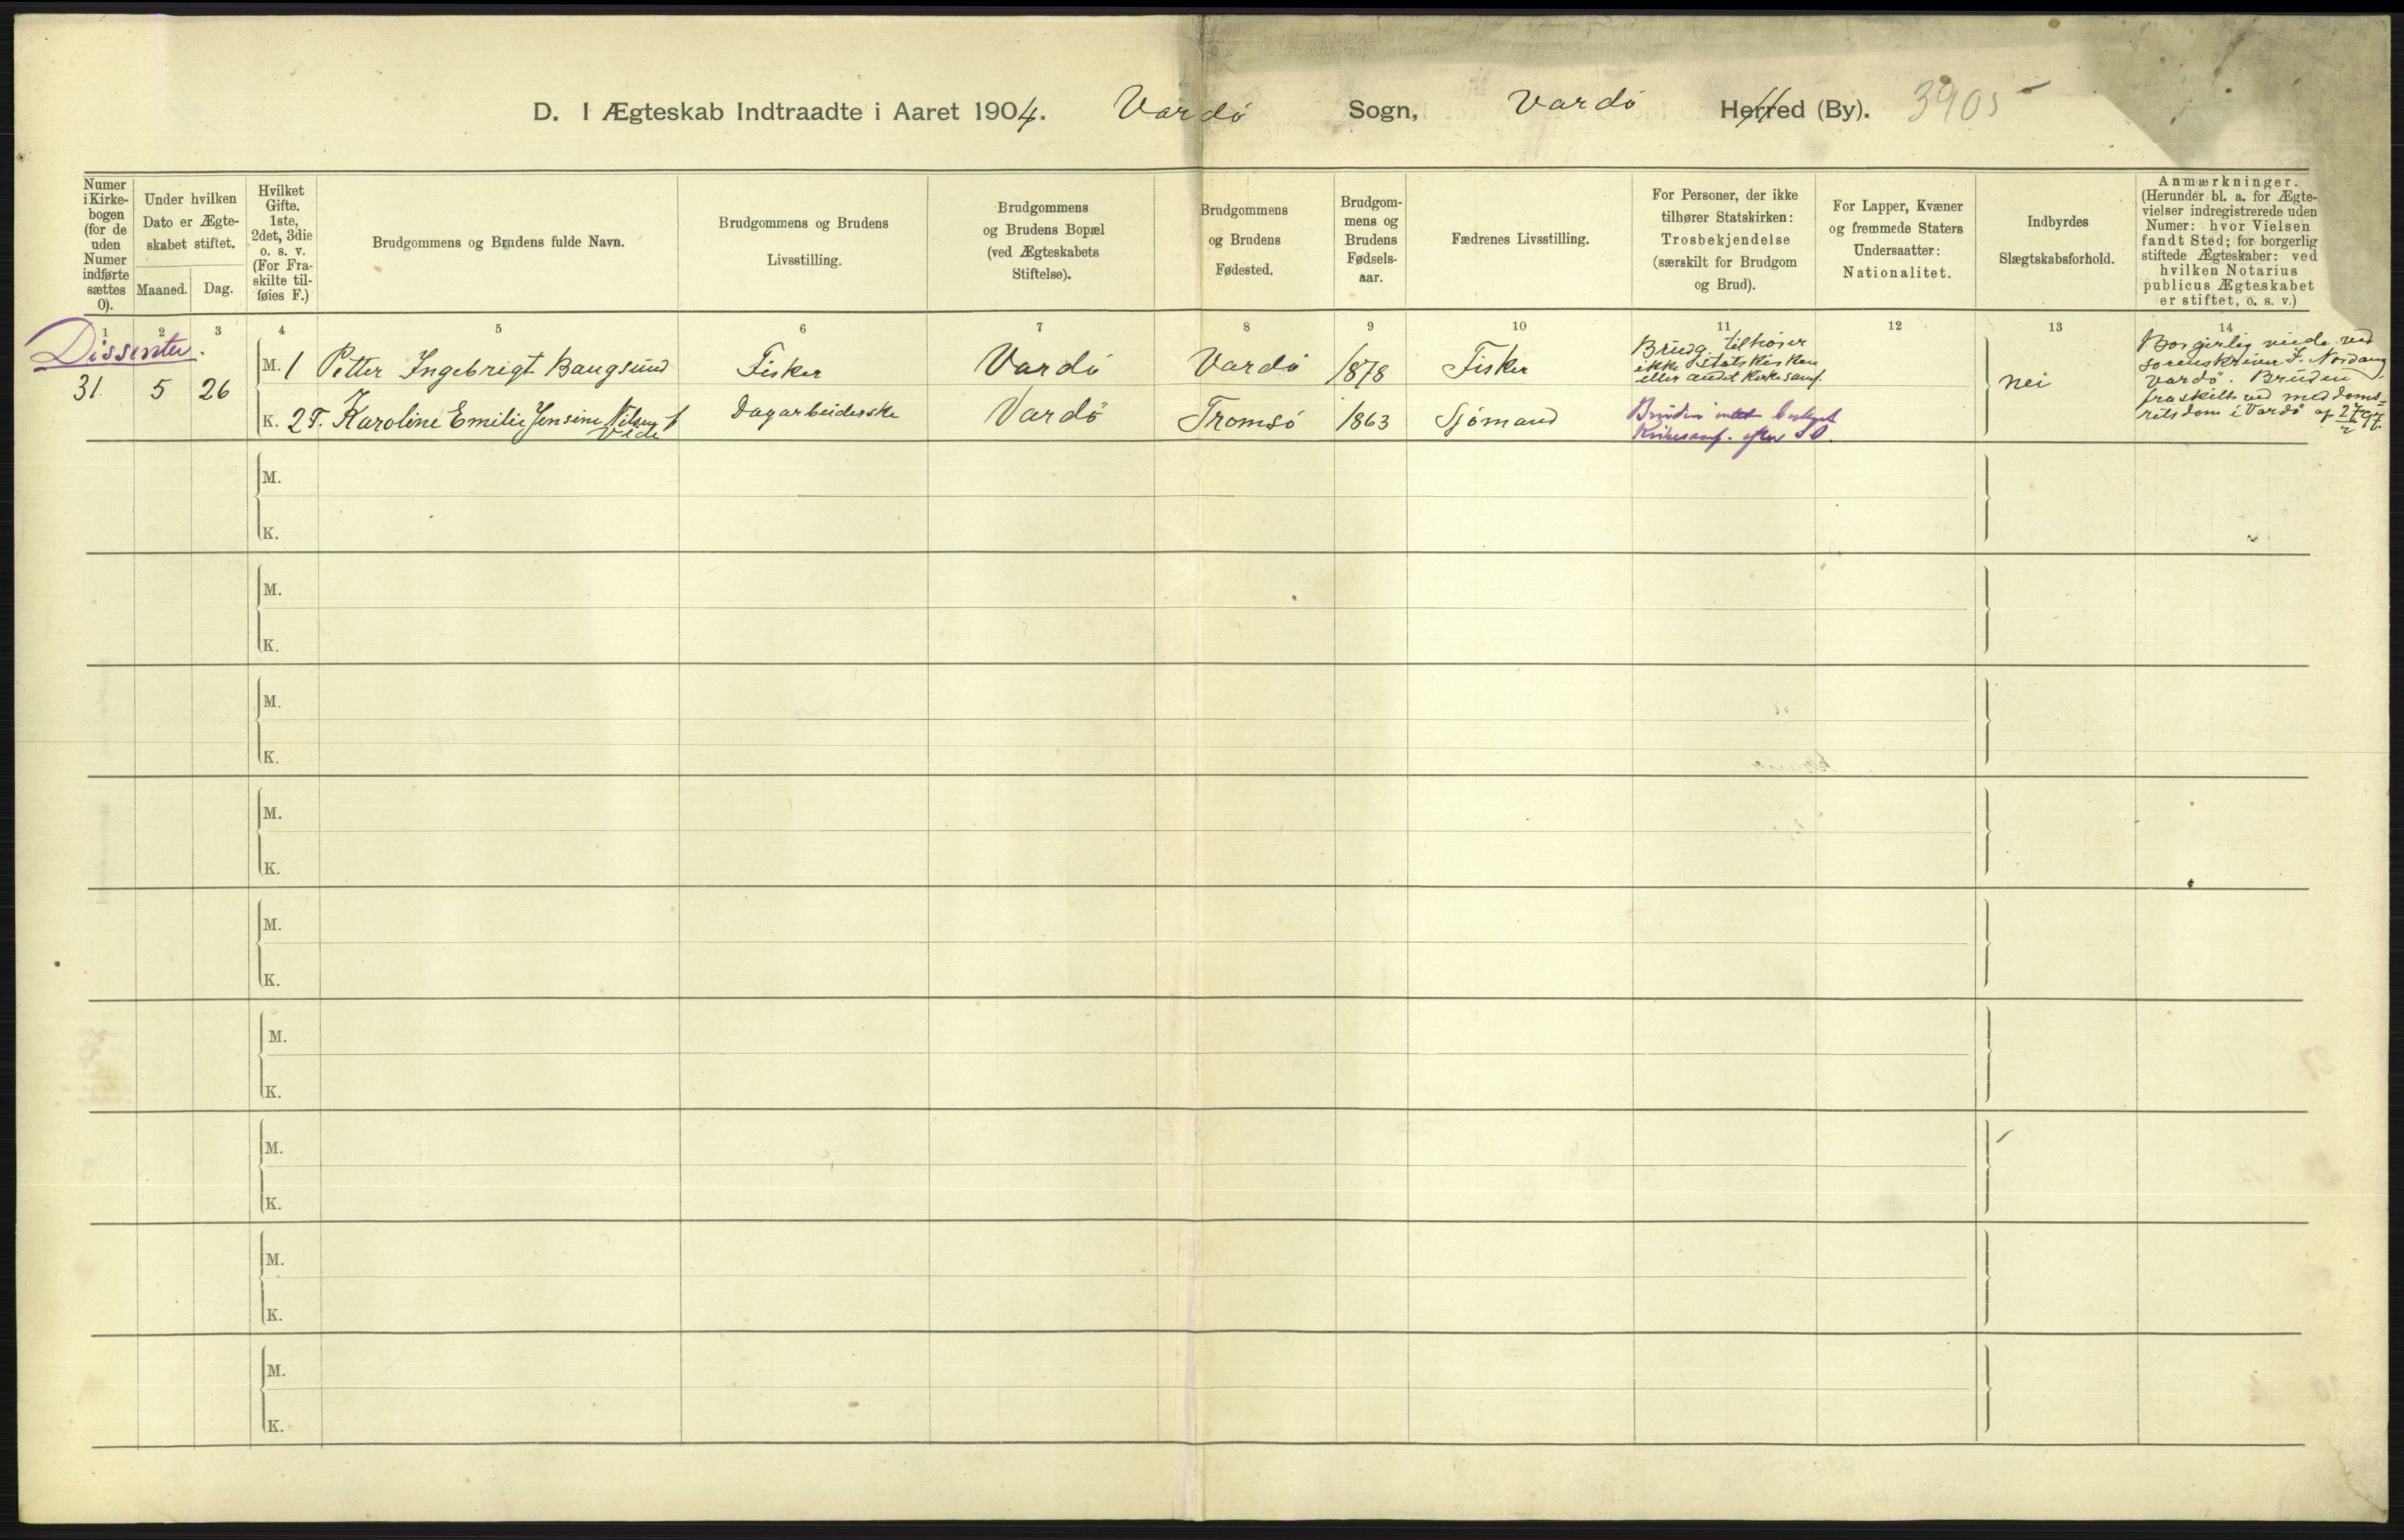 D. I Ægteskab Indtraadte i Aaret 1904. Vardö Sogn, Vardö Herred (By). 3905
Numer i Kirke-bogen (for de uden Numer indførte sættes 0).
Under hvilken Dato er Ægte-skabet stiftet.
Maaned. Dag.
Hvilket Gifte. 1ste, 2det, 3die o. s. v. (For Fra-skilte til-føies F.)
Brudgommens og Brudens fulde Navn.
Brudgommens og Brudens Livsstilling.
Brudgommens og Brudens Bopæl (ved Ægteskabets Stiftelse).
Brudgommens og Brudens Fødested.
Brudgom-mens og Brudens Fødsels-aar.
Fædrenes Livsstilling.
For Personer, der ikke tilhører Statskirken: Trosbekjendelse (særskilt for Brudgom og Brud).
For Lapper, Kvæner og fremmede Staters Undersaatter: Nationalitet.
Indbyrdes Slægtskabsforhold.
Anmærkninger. (Herunder bl. a. for Ægte-vielser indregistrerede uden Numer: hvor Vielsen fandt Sted; for borgerlig stiftede Ægteskaber: ved hvilken Notarius publicus Ægteskabet er stiftet, o. s. v.)
1 2 3 4 5 6 7 8 9 10 11 12 13 14
Dissenter.
31. 5 26
M. 1 Petter Ingebrigt Baugsund Fisker Vardö Vardö 1878 Fisker
Brudg. tilhörer
ikke statskirken
eller andet kirkesamf.
K. 2 F. Karoline Emilie Jensine Nilsen f
Vide
Dagarbeiderske Vardö Tromsö 1863 Sjömand
Bruden intet
Kirkesamf. efter
nei
Borgerlig viede ved
sorenskriver J. Nordang,
Vardö. Bruden
fraskilt ved meddoms=
retsdom i Vardö af
M.
K.
M.
K.
M.
K.
M.
K.
M.
K.
M.
K.
M.
K.
M.
K.
M.
K.